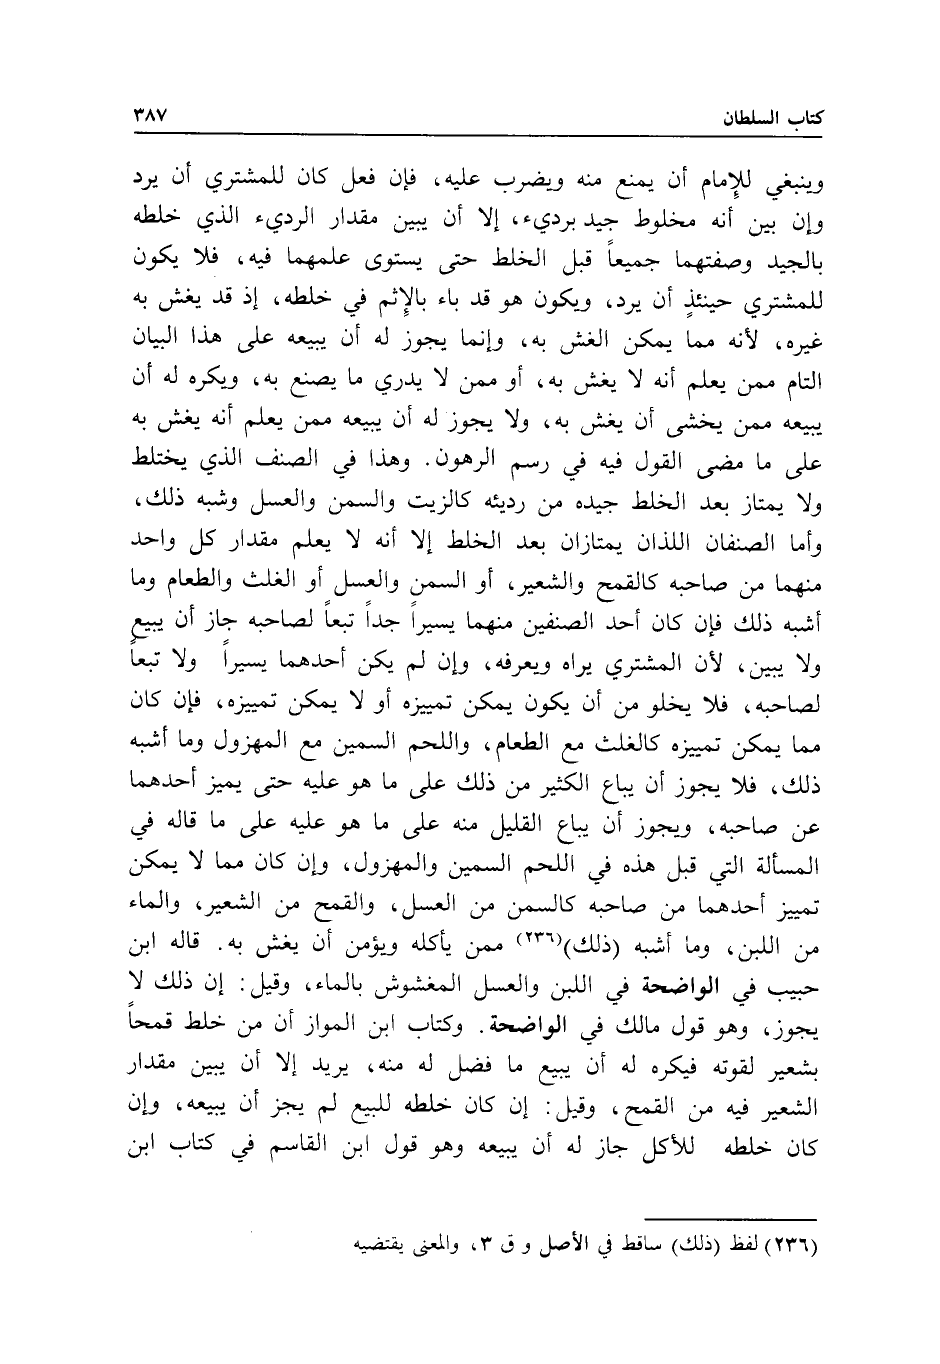 كتاب السلطان ٣٨٧
وينبغي للإمام أن يمنع منه ويضرب عليه، فإن فعل كان للمشتري أن يرد
وإن بين أنه مخلوط جيد برديء، إلا أن يبين مقدار الرديء الذي خلطه
بالجيد وصفتهما جميعاً قبل الخلط حتى يستوى علمهما فيه، فلا يكون
للمشتري حينئذٍ أن يرد، ويكون هو قد باء بالإثم في خلطه، إذ قد يغش به
غيره، لأنه مما يمكن الغش به، وإنما يجوز له أن يبيعه على هذا البيان
التام ممن يعلم أنه لا يغش به، أو ممن لا يدري ما يصنع به، ويكره له أن
يبيعه ممن يخشى أن يغش به، ولا يجوز له أن يبيعه ممن يعلم أنه يغش به
على ما مضى القول فيه في رسم الرهون. وهذا في الصنف الذي يختلط
ولا يمتاز بعد الخلط جيده من رديئه كالزيت والسمن والعسل وشبه ذلك،
وأما الصنفان اللذان يمتازان بعد الخلط إلا أنه لا يعلم مقدار كل واحد
منهما من صاحبه كالقمح والشعير، أو السمن والعسل أو الغلث والطعام وما
أشبه ذلك فإن كان أحد الصنفين منهما يسيراً جداً تبعاً لصاحبه جاز أن يبيع
ولا يبين، لأن المشتري يراه ويعرفه، وإن لم يكن أحدهما يسيراً ولا تبعاً
لصاحبه، فلا يخلو من أن يكون يمكن تمييزه أو لا يمكن تمييزه، فإن كان
مما يمكن تمييزه كالغلث مع الطعام، واللحم السمين مع المهزول وما أشبه
ذلك، فلا يجوز أن يباع الكثير من ذلك على ما هو عليه حتى يميز أحدهما
عن صاحبه، ويجوز أن يباع القليل منه على ما هو عليه على ما قاله في
المسألة التي قبل هذه في اللحم السمين والمهزول، وإن كان مما لا يمكن
تمييز أحدهما من صاحبه كالسمن من العسل، والقمح من الشعير، والماء
من اللبن، وما أشبه (ذلك)(٢٣٦) ممن يأكله ويؤمن أن يغش به. قاله ابن
حبيب في الواضحة في اللبن والعسل المغشوش بالماء، وقيل: إن ذلك لا
يجوز، وهو قول مالك في الواضحة. وكتاب ابن المواز أن من خلط قمحاً
بشعير لقوته فيكره له أن يبيع ما فضل له منه، يريد إلا أن يبين مقدار
الشعير فيه من القمح، وقيل: إن كان خلطه للبيع لم يجز أن يبيعه، وإن
كان خلطه للأكل جاز له أن يبيعه وهو قول ابن القاسم في كتاب ابن
(٢٣٦) لفظ (ذلك) ساقط في الأصل و ق ٣، والمعنى يقتضيه